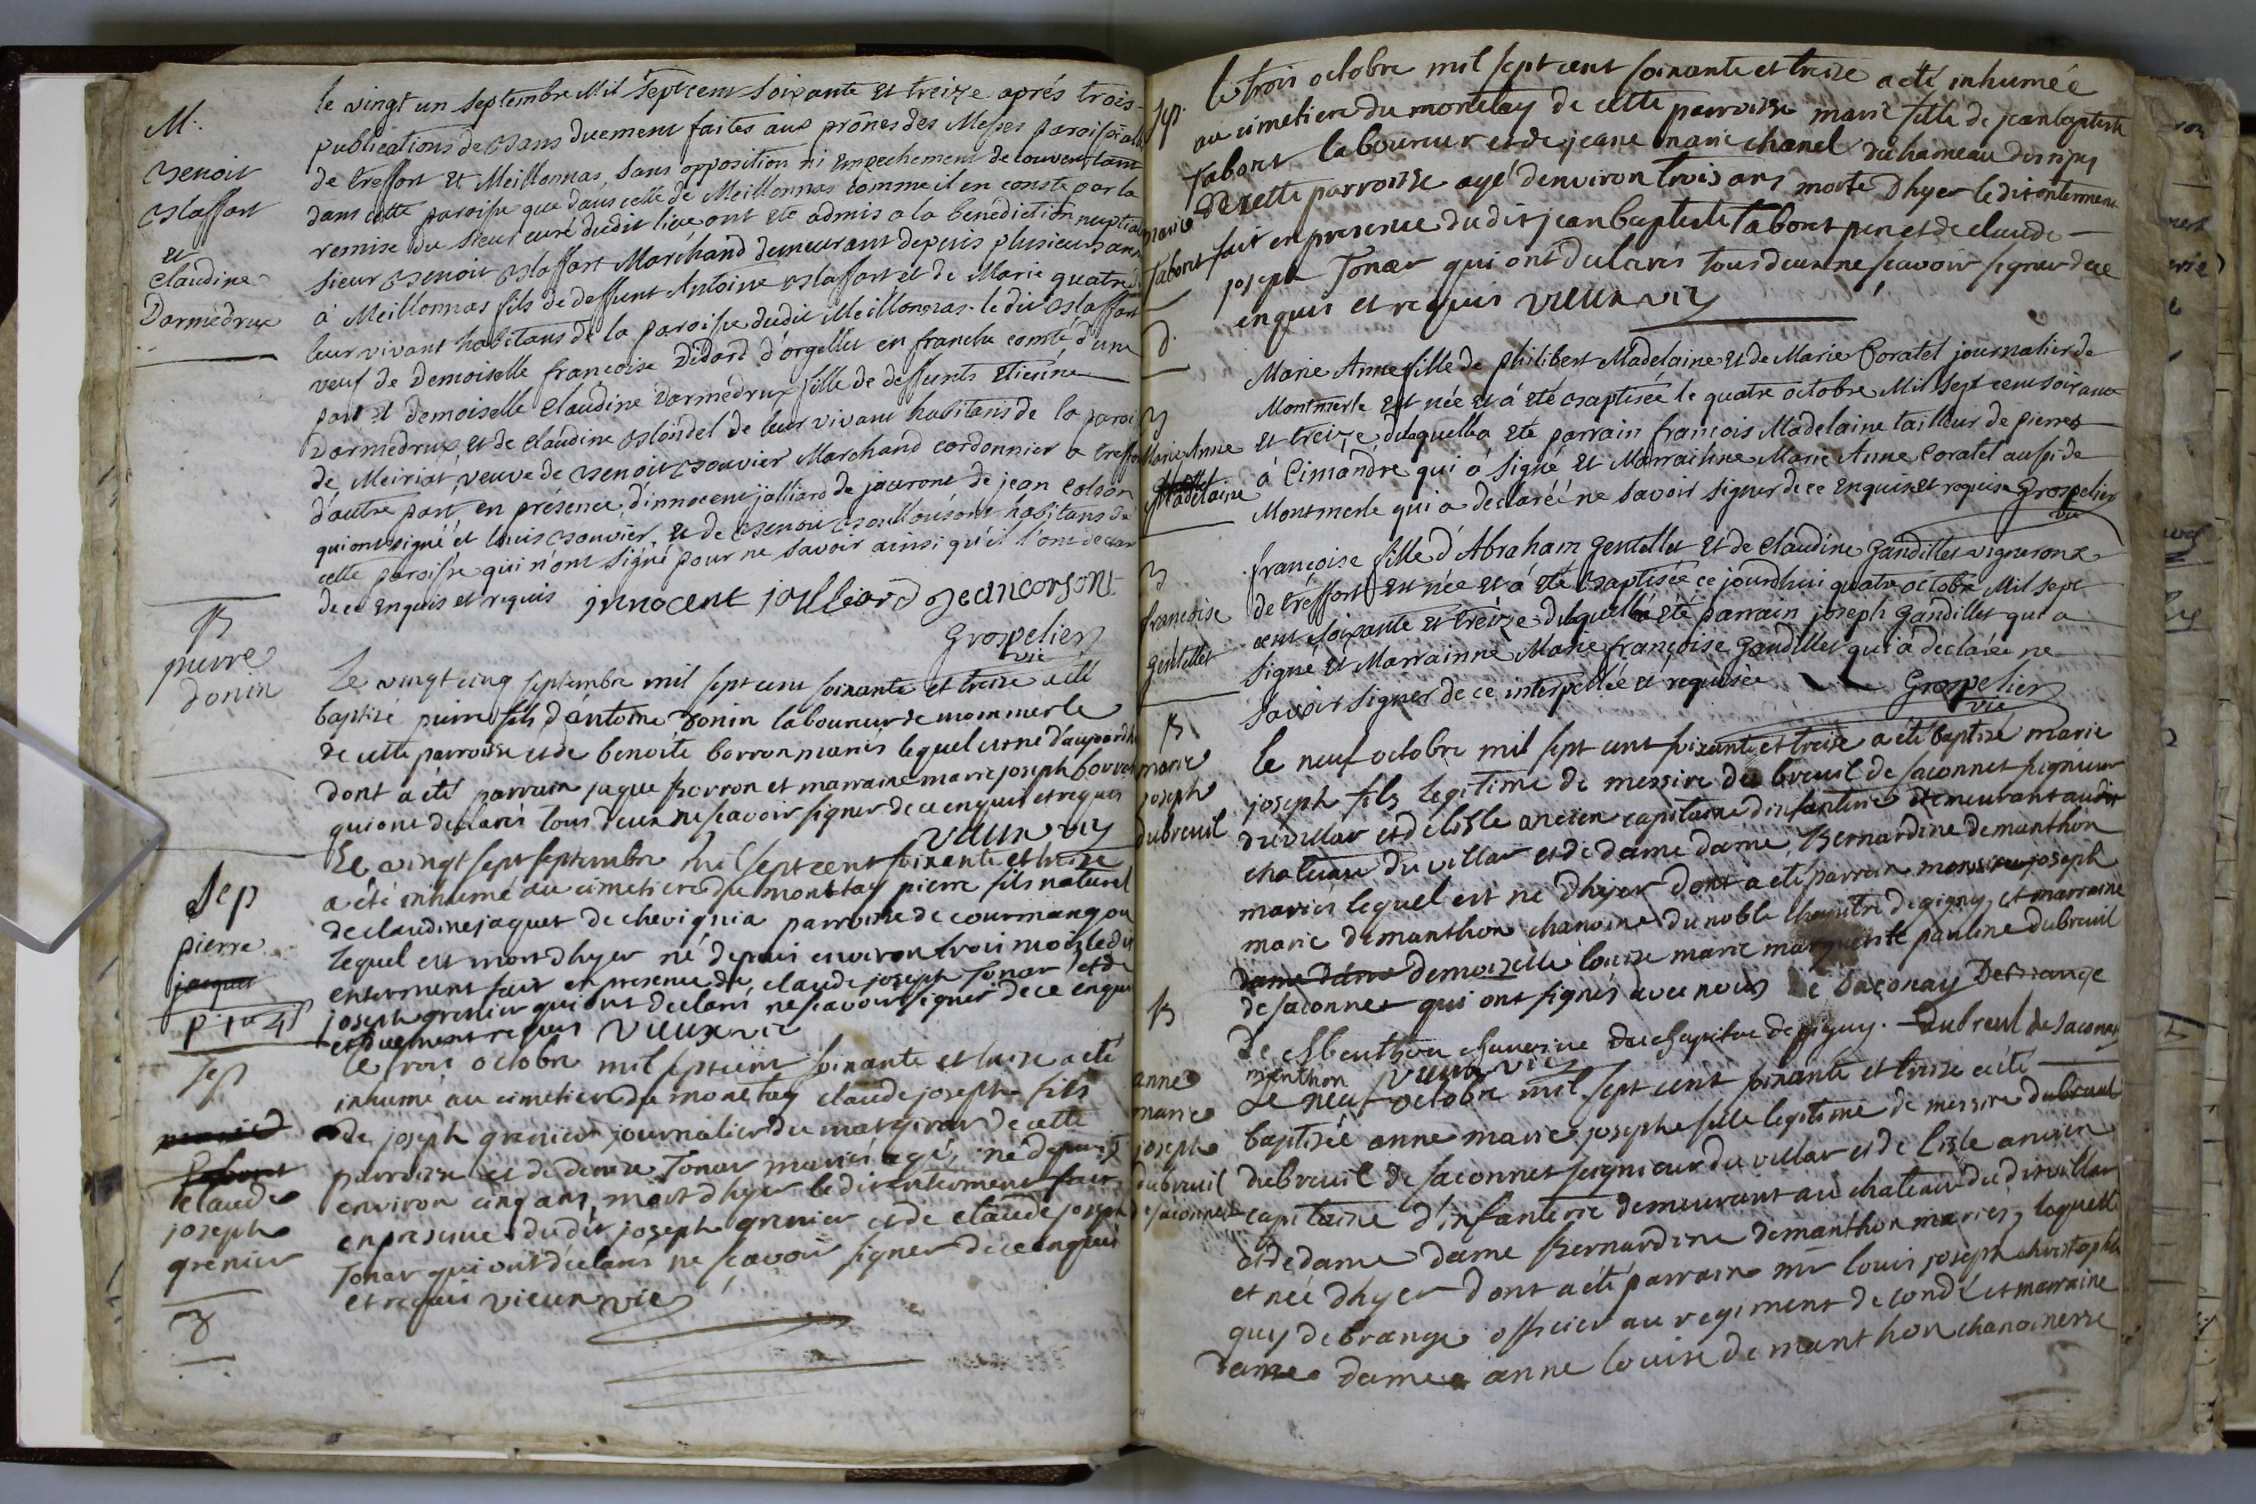 M.
Benoit
Blaffart
et
Claudine
Darmedrux
le vingt un septembre Mil Septcent soixante et treize aprés trois
publications de Bans duement faites aux prônes des Messes
de treffort et Meillonnas, sans opposition ni empechement de couvent tant
dans cette paroisse que dans celle de Meillonnas comme il en conste par la
remise du Sieur curé dudit lieu ont eté admis a la benediction nuptial
sieur Benoit Blaffart Marchand demeurant depuis plusieurs
à Meillonnas fils de deffunt Antoine Blaffart et de Marie quatre
leur vivant habitans de la paroisse dudit Meillonnas. le dit Blaffart
veuf de Demoiselle françoise Didart d'orgellet en franche comté d'une
part et Demoiselle Claudine Darmedrux fille de deffunts Etienne
Darmedrux et de Claudine Blondel de leur vivant habitans de la
de Meiriat, veuve de Benoit Bouvier Marchand cordonnier a
d'autre part en présence d'innocent jalliard de jaceront de jean Colson
qui ont signé et louis Bouvier et de Benoit habitans de
cette paroisse qui n'ont signé pour ne savoir ainsi qu'il l'ont
de ce enquis et requis innocent jalliard jean corsont
Grospelier
vie
B
pierre
donin
Le vingt cinq septembre mil sept cent soixante et treize a eté
baptizé pierre fils d'antoine Donin laboureur de mommerle
de cette parroisse et de benoite borron mariés lequel est né d'aujourd'hui
dont a été parrain jaque Borron et marraine marie joseph
qui ont declarés tous deux ne scavoir signer de ce enquis et requis
vieux vie
Sep
pierre
jaquet
Le vingt sept septembre mil sept cent soixante et treize
a été inhumé au cimetiere du monetay pierre fils naturel
de claudine jaquet de chevignia parroisse de courmangou
lequel est mort dhyer né depuis environ trois mois ledit
enterrement fait en presence de claude joseph Tonar et de
joseph grenier qui ont declaré ne scavoir signer de ce enquis
et duement requis vieux vie
Sep
claude
joseph
grenier
le trois octobre mil sept cent soixante et treize a eté
inhumé au cimetiere du monetay claude joseph fils
de joseph grenier journalier du de cette
parroisse et de denise Tonar mariés agé, né depuis
environ cinq ans, mort dhyer ledit enterrement fait
en presence dudit joseph grenier et de claude joseph
Tonar qui ont declarés ne scavoir signer de ce enquis
et requis vieux vie
Sep.
marie
Tabont
le trois octobre mil sept cent soixante et treize a eté inhumée
au cimetiere du monetay de cette parroisse marie fille de jean baptiste
Tabont laboureur et de jeane marie chanel du hameau
de cette parroisse agé d'environ trois ans morte dhyer ledit enterrement
fait en presence dudit jean baptiste Tabont pere et de claude
joseph Tonar qui ont declarés tous deux ne scavoir signer de ce
enquis et requis vieux vie
B
Marie Anne
Madelaine
Marie Anne fille de philibert Madelaine et de Marie Coratet journalier de
Montmerle est née et a été Baptisée le quatre octobre Mil Sept cent soixante
et treize, de laquelle a eté parrain françois Madelaine tailleur de pierres
à Cimandre qui a signé et Marrainne Marie Anne Coratet aussi de
Montmerle qui a declaréé ne savoir signer de ce enquise et requise Grospelier
vie
B
françoise
Gentellet
françoise fille d'Abraham Gentellet et de Claudine Gandillet vignerons
de treffort est née et a été Baptisée ce jourdhui quatre octobre Mil Sept
cent soixante et treize, de laquelle a été parrain joseph Gandillet qui a
signé et Marrainne Marie françoise Gandillet qui a declarée ne
savoir signer de ce interpellée et requisée Grospelier
vie
B
marie
joseph
dubreuil
le neuf octobre mil sept cent soixante et treize a été baptizé marie
joseph fils legitime de messire du breuil de saconnet seigneur
du villar et de lisle ancien capitaine d'infanterie demeurant audit
chateau du villar et de dame dame Bernardine demanthon
mariés lequel est né dhyer dont a été parrain monsieur joseph
marie demanthon chanoine du noble chapitre de gigny, et marraine
dame dame demoiselle louise marie marguerite pauline dubreuil
de saconnet qui ont signés avec nous De Saconay Debrange
De Menthon chanoine du chapitre de gigny. Dubreul de Saconay
menthon vieux vie
B
anne
marie
joseph
dubreuil
de saconnet
Le neuf octobre mil sept cent soixante et treize a été
baptisée anne marie josephe fille legitime de messire dubreul
dubreuil de saconnet seigneur du villar et de lisle ancien
capitaine d'infanterie demeurant au chateau dudit villar
et de dame dame Bernardine demanthon mariés, laquelle
et née dhyer dont a été parrain mr louis joseph christophe
guy debrange officier au regiment de condé et marraine
dame dame anne louise de manthon chanoinesse